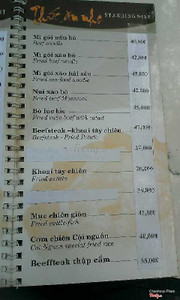 Thức ăn nhẹ STANDING MIST
Mì gói nấu bò 40,000
Beef noodle
Mì gói xào bò 42,000
Fried beef noodle
Mì gói xào hải sản 45,000
Fried sea-food noodle
Nui xào bò 42,000
Fried beef Macaroni
Bò lúc lắc 55,000
Fried cube beef with salad
Beefsteak - khoai tây chiên 47,000
Beefsteak - Fried Potato
Khoai tây chiên
Fried potato
Mực chiên giòn 42,000
Fried cuttle-fish
Cơm chiên Cội nguồn 40,000
Coi Nguon special fried rice
Beeffteak thập cẩm 55,000